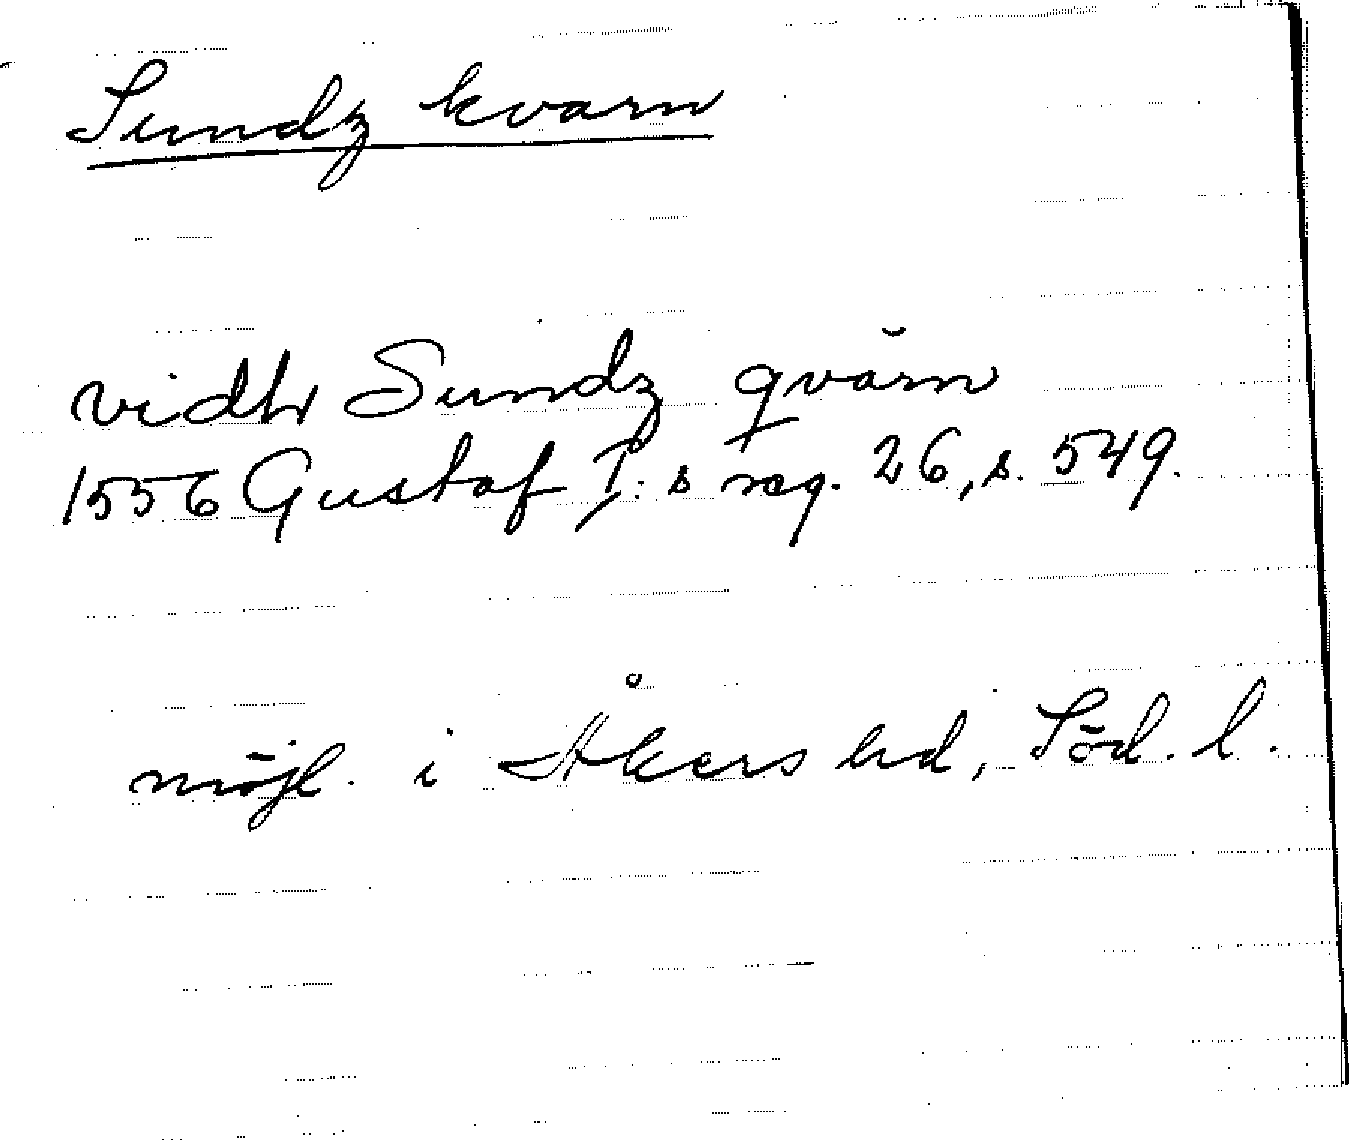 Sundz kvarn
vidh Sundz qvarn
1556 Gustaf I:s reg. 26, s. 549.
möjl. i Åkers hd, Söd. l.